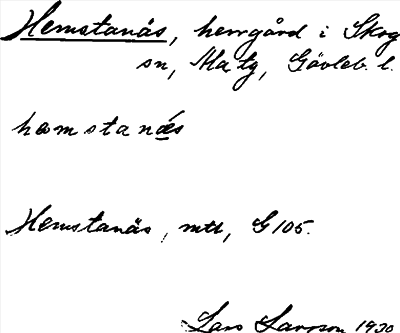 Hemstanäs, herrgård i Skog
sn, Ma tg, Gävleb. l.
hæmstanæs
Hemstanäs, mtl, G 105.
Lars Larsson 1930